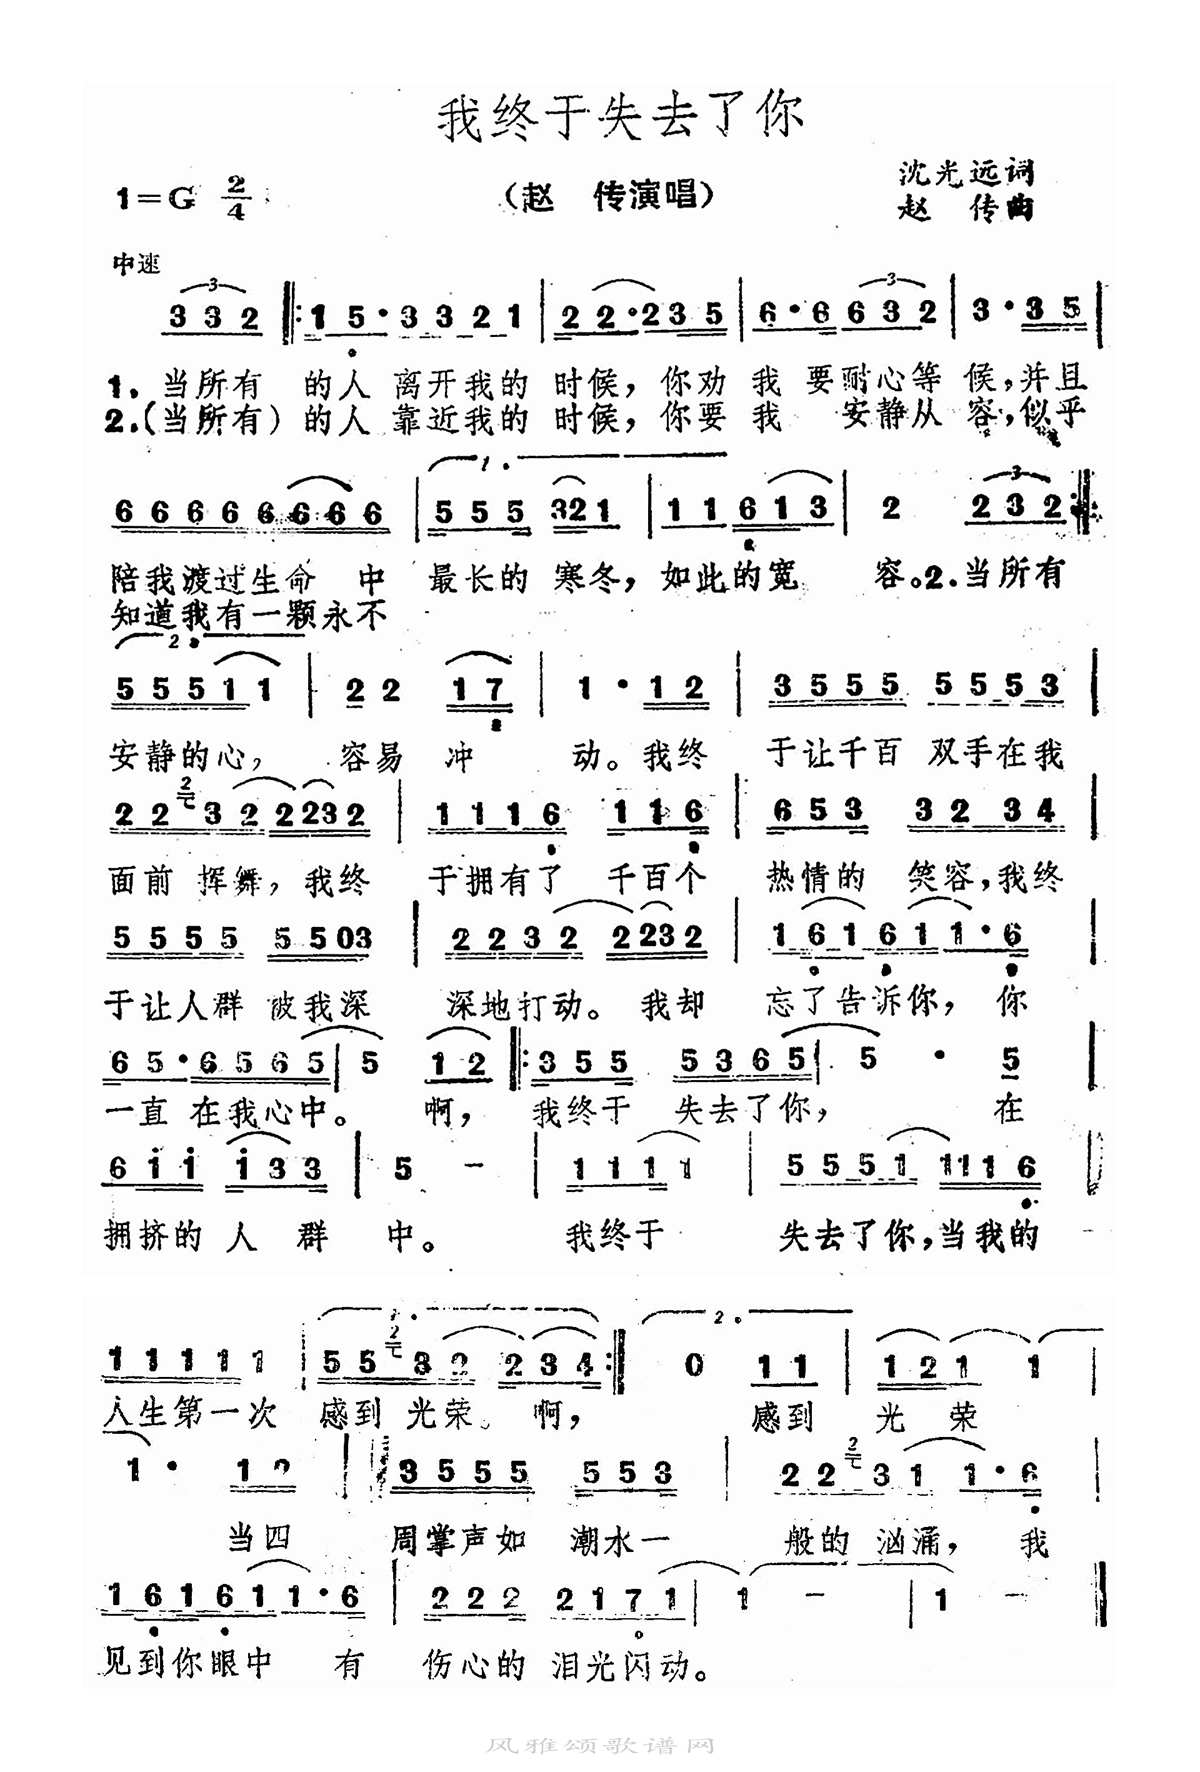 我终于失去了你
1=G 2/4
（赵 传演唱）
沈光远词
赵 传曲
中速
3 3 2 1 5 · 3 3 2 1 2 2 · 2 3 5 6 · 6 6 3 2 3 · 3 5
1. 当所有 的人 离开我的 时候，你劝 我 要耐心等 候，并且
2.（当所有）的人 靠近我的 时候，你要 我 安静从 容，似乎
6 6 6 6 6 6 6 6 5 5 5 3 2 1 1 1 6 1 3 2 2 3 2
陪我渡过生命 中 最长的 寒冬，如此的宽 容。2. 当所有
知道我有一颗永不
5 5 5 1 1 2 2 1 7 1 · 1 2 3 5 5 5 5 5 5 3
安静的心，容易 冲 动。我终 于让千百 双手在我
2 2 2 3 2 2 2 3 2 1 1 1 6 1 1 6 6 5 3 3 2 3 4
面前 挥舞，我终 于拥有了 千百个 热情的 笑容，我终
5 5 5 5 5 5 0 3 2 2 3 2 2 2 3 2 1 6 1 6 1 1 · 6
于让人群 被我深 深地打动。我却 忘了告诉你，你
6 5 · 6 5 6 5 5 1 2 3 5 5 5 3 6 5 5 · 5
一直 在我心中。啊，我终于 失去了你，在
6 1 1 1 3 3 5 - 1 1 1 1 5 5 5 1 1 1 1 6
拥挤的 人 群 中。我终于 失去了你，当我的
1 1 1 1 1 1 5 5 2 3 2 2 3 4 0 1 1 1 2 1 1
人生第一次 感到 光荣。啊，感到 光 荣
1 · 1 2 3 5 5 5 5 5 3 2 2 2 3 1 1 · 6
当四 周掌声如 潮水一 般的 汹涌，我
1 6 1 6 1 1 · 6 2 2 2 2 1 7 1 1 - 1 -
见到你眼中 有 伤心的 泪光闪动。
风雅颂歌谱网